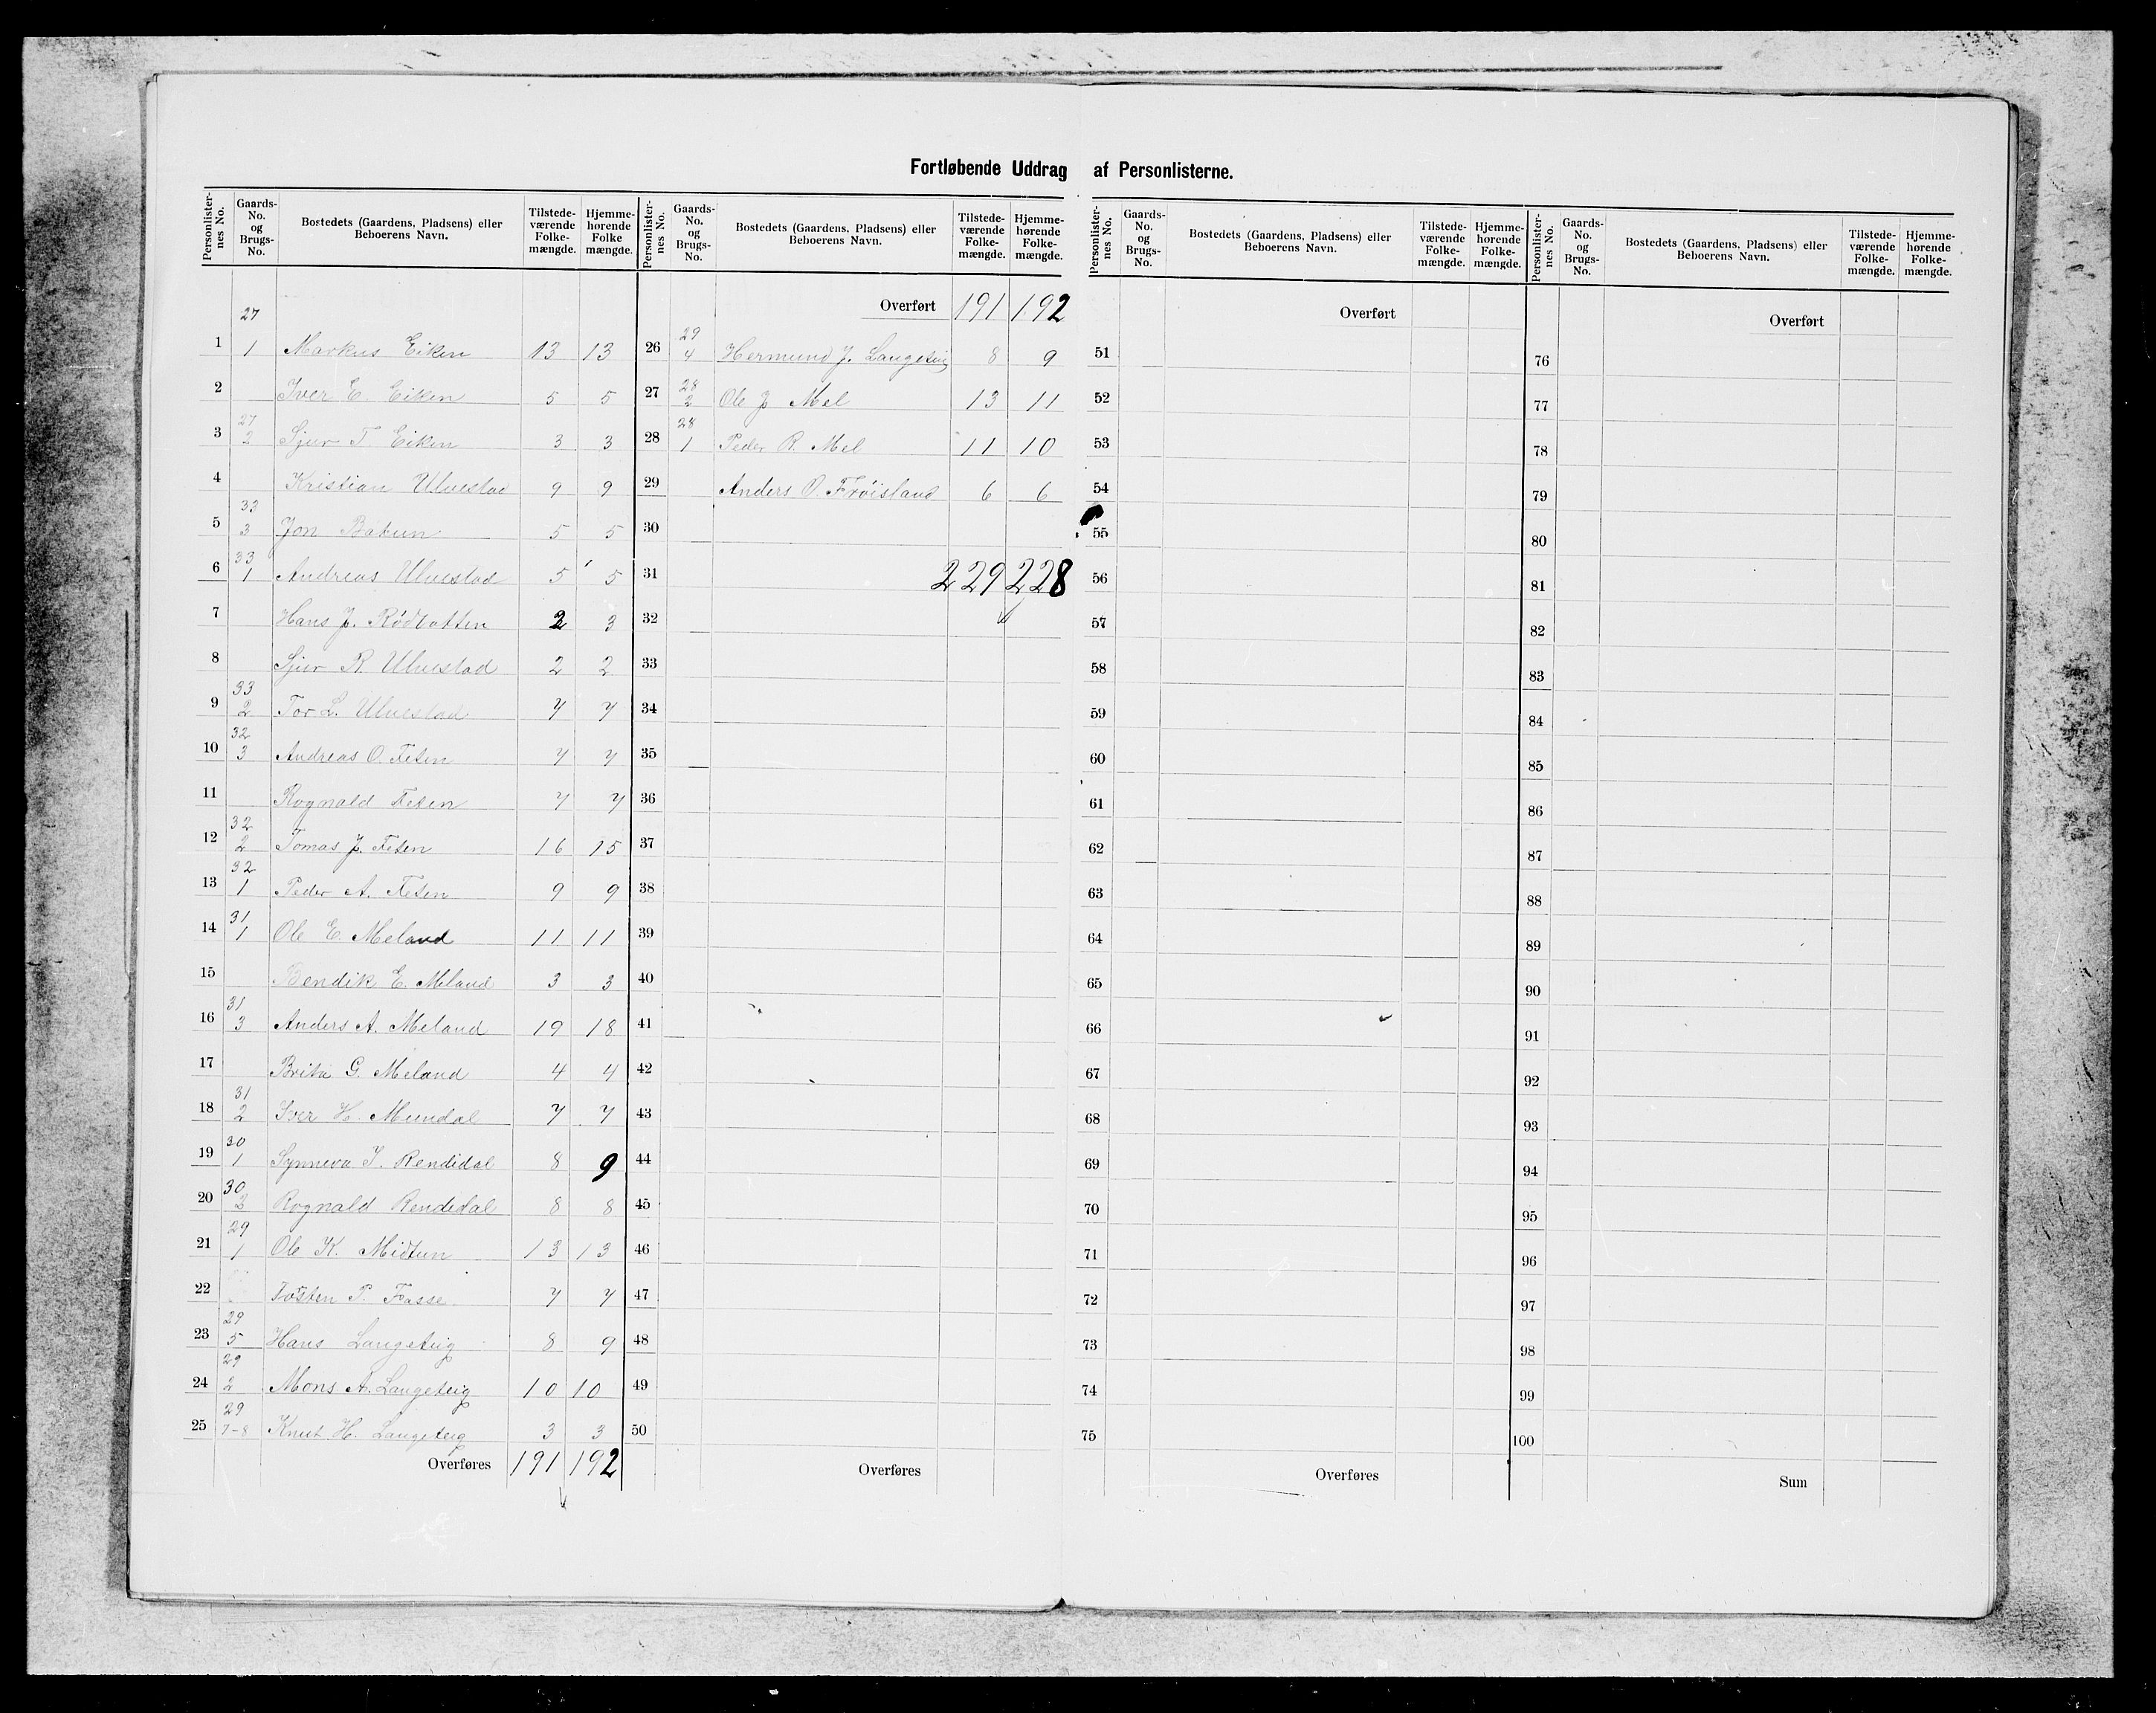 Fortløbende Uddrag af Personlisterne.
Personlister-nes No. Gaards-No. og Brugs-No. Bostedets (Gaardens, Pladsens) eller Beboerens Navn. Tilstede-værende Folke-mængde. Hjemme-hørende Folke mængde.
Personlister-nes No. Gaards-No. og Brugs-No. Bostedets (Gaardens, Pladsens) eller Beboerens Navn. Tilstede-værende Folke-mængde. Hjemme-hørende Folke-mængde.
Personlister-nes No. Gaards-No. og Brugs-No. Bostedets (Gaardens, Pladsens) eller Beboerens Navn. Tilstede-værende Folke-mængde. Hjemme-hørende Folke-mængde.
Personlister-nes No. Gaards-No. og Brugs-No. Bostedets (Gaardens, Pladsens) eller Beboerens Navn. Tilstede-værende Folke-mængde. Hjemme-hørende Folke-mængde.
1 27/1 Markus Eiken 13 13
2 Iver E. Eiken 5 5
3 27/2 Sjur T. Eiken 3 3
4 Kristian Ulvestad 9 9
5 33/3 Jon Batun 5 5
6 33/1 Andreas Ulvestad 5 5
7 Hans J. Rødbotten 2 3
8 Sjur R. Ulvestad 2 2
9 33/2 Tor L. Ulvestad 7 7
10 32/3 Andreas O. Feten 7 7
11 Rognald Feten 7 7
12 32/2 Tomas J. Feten 16 15
13 32/1 Peder A. Feten 9 9
14 31/1 Ole E. Meland 11 11
15 Bendik E. Meland 3 3
16 31/3 Anders A. Meland 19 18
17 Brita G. Meland 4 4
18 31/2 Iver H. Mundal 7 7
19 30/1 Synneva I. Rendidal 8 9
20 30/2 Rognald Rendedal 8 8
21 29/1 Ole K. Midtun 13 13
22 Tosten P. Fosse 7 7
23 29/5 Hans Langeteig 8 9
24 29/2 Mons A. Langeteig 10 10
25 29/7-8 Knut H. Langeteig 3 3
Overføres 191 192
Overført 191 192
26 29/4 Hermund J. Langeteig 8 9
27 28/2 Ole J. Mel 13 11
28 28/1 Peder R. Mel 11 10
29 Anders O. Frøisland 6 6
30
31 229 228
32
33
34
35
36
37
38
39
40
41
42
43
44
45
46
47
48
49
50
Overføres
Overført
51
52
53
54
55
56
57
58
59
60
61
62
63
64
65
66
67
68
69
70
71
72
73
74
75
Overføres
Overført
76
77
78
79
80
81
82
83
84
85
86
87
88
89
90
91
92
93
94
95
96
97
98
99
100
Sum